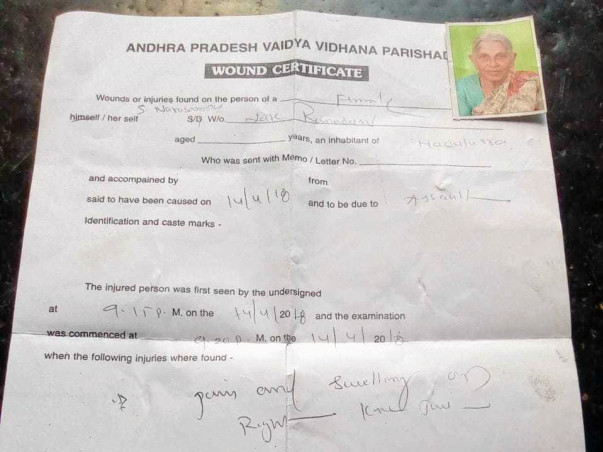 ANDHRA PRADESH VAIDYA VIDHANA PARISHAD
WOUND CERTIFICATE
Wounds or injuries found on the person of a
himself / her self S/D W/o
aged years, an inhabitant of
Who was sent with Memo / Letter No.
and accompained by from
said to have been caused on 14/4/18 and to be due to Assault
Identification and caste marks -
The injured person was first seen by the undersigned
at 9.15 P. M. on the 14/4/2018 and the examination
was commenced at 9.20 P. M. on the 14/4/2018
when the following injuries where found -
pain and swelling on
Right